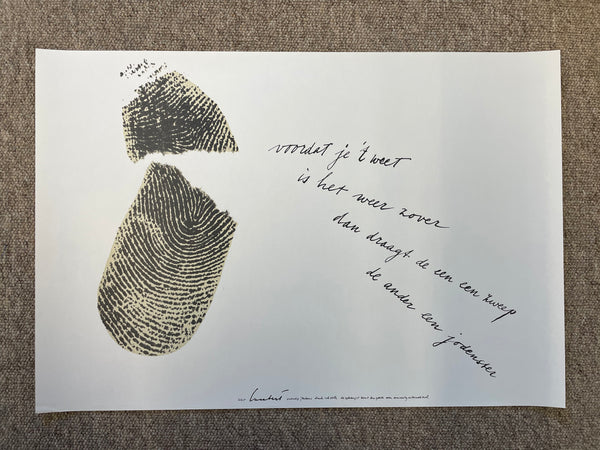 voordat je 't weet
is het weer zover
dan draagt de een een zweep
de ander een jodenster